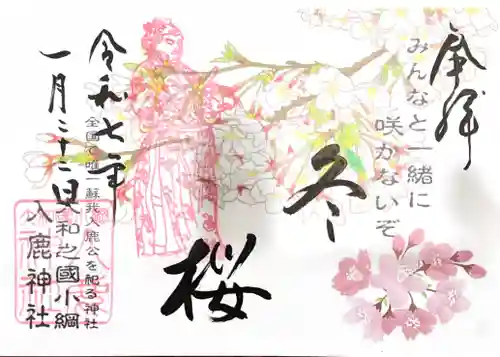 奉拝
みんなと一緒に
咲かないぞ
冬
桜
令和七年
全国で唯一蘇我入鹿公を祀る神社
一月二十二日
大和之國小綱
入鹿神社